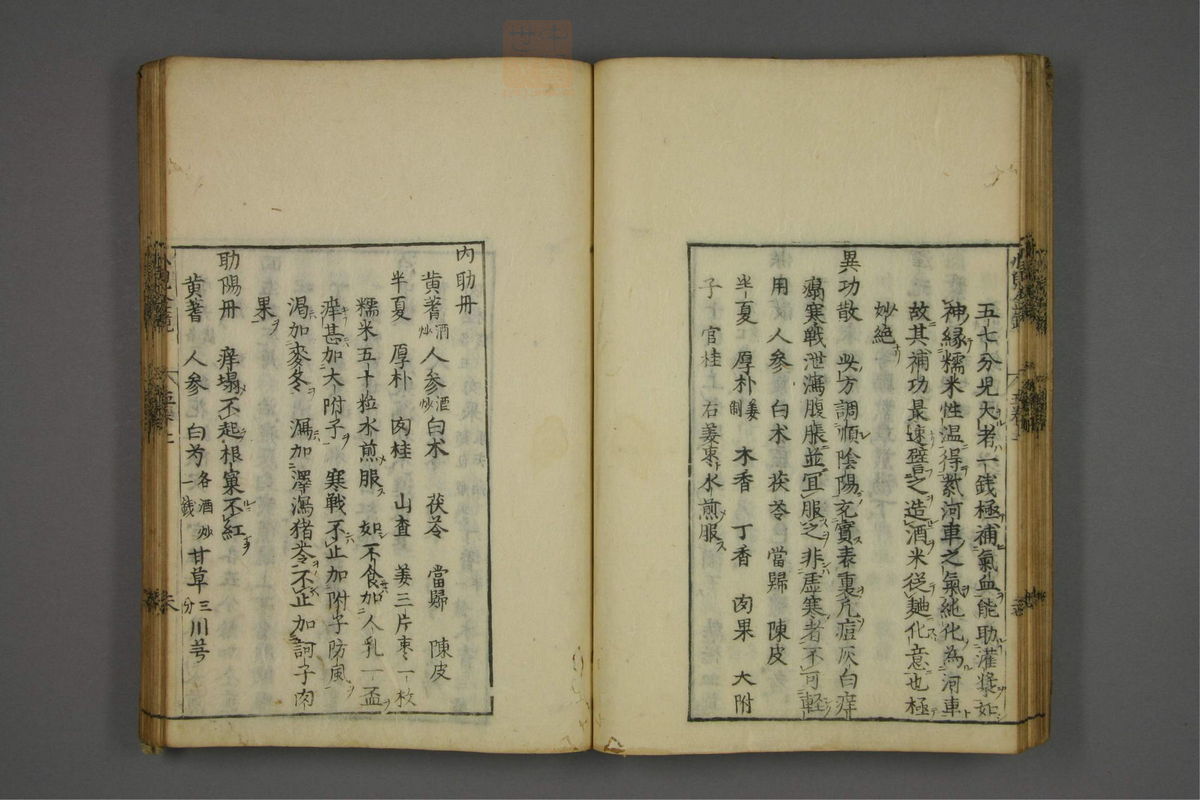 五七分児大者一銭極補氣血能助灌漿如
神縁糯米性温得紫河車之氣純化為河車
故其補功最速譬之造酒米従麹化意也極
妙絶
異功散 此方調順陰陽充實表裏凢痘灰白痒
塌寒戦泄瀉腹脹並宜服之非虚寒者不可軽
用 人参 白朮 茯苓 當歸 陳皮
半夏 厚朴姜制 木香 丁香 肉果 大附
子 官桂 右姜枣水煎服
内助丹
黄蓍酒炒 人参酒炒 白朮 茯苓 當歸 陳皮
半夏 厚朴 肉桂 山査 姜三片枣一枚
糯米五十粒水煎服 如不食加人乳一盃
痒甚加大附子 寒戦不止加附子防風
渇加麥冬 瀉加澤瀉猪苓不止加訶子肉
果
助陽丹 痒塌不起根窠不紅
黄蓍 人参 白芍各酒炒一銭 甘草三分 川芎